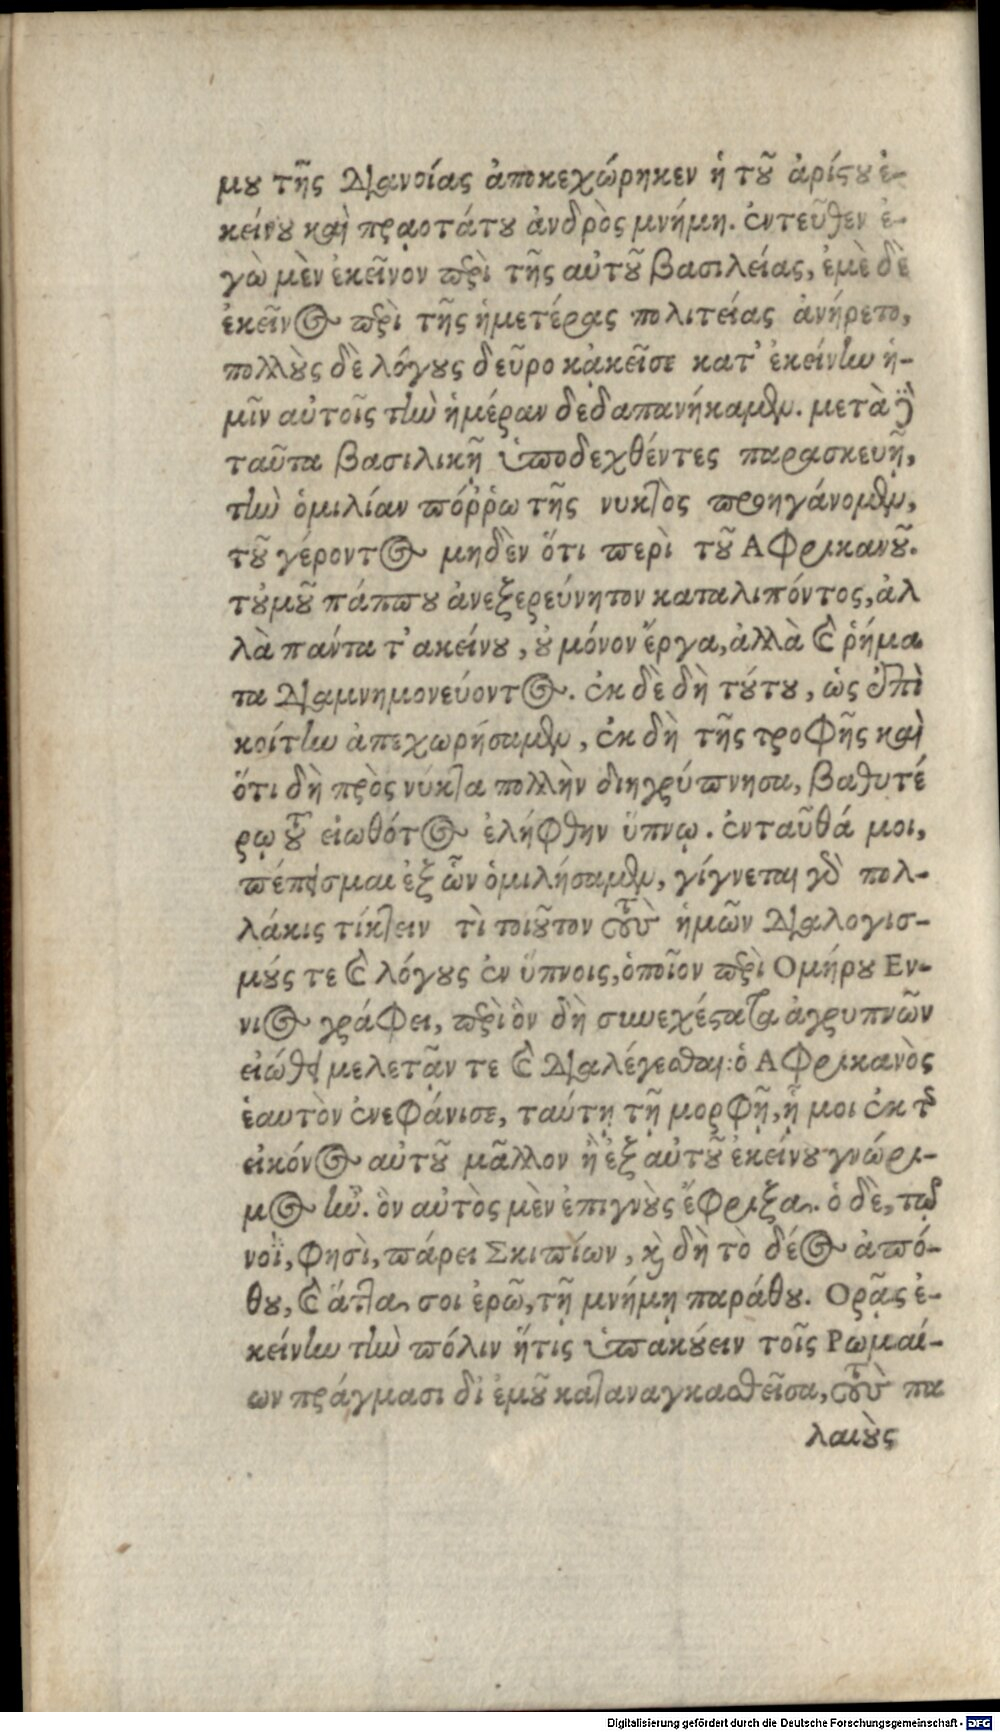 μου τῆς διανοίας ἀποκεχώρηκεν ἡ τοῦ ἀρίστου ἐ-
κείνου καὶ πραοτάτου ἀνδρὸς μνήμη. ἐντεῦθεν ἐ-
γὼ μὲν ἐκεῖνον περὶ τῆς αὐτοῦ βασιλείας, ἐμὲ δὲ
ἐκεῖνος περὶ τῆς ἡμετέρας πολιτείας ἀνήρετο,
πολλοὺς δὲ λόγους δεῦρο κἀκεῖσε κατ’ ἐκείνην ἡ-
μῖν αὐτοῖς τὴν ἡμέραν δεδαπανήκαμεν. μετὰ δὲ
ταῦτα βασιλικῇ ὑποδεχθέντες παρασκευῇ,
τὴν ὁμιλίαν πόῤῥω τῆς νυκτὸς προηγάνομεν,
τοῦ γέροντος μηδὲν ὅτι περὶ τοῦ Αφρικανοῦ.
τοὐμοῦ πάππου ἀνεξερεύνητον καταλιπόντος, ἀλ
λὰ πάντα τ’ ακείνου, οὐ μόνον ἔργα, ἀλλὰ καὶ ῥήμα
τα διαμνημονεύοντος. ἐκ δὲ δὴ τούτου, ὡς ἐπὶ
κοίτην ἀπεχωρήσαμεν, ἐκ δὴ τῆς τροφῆς καὶ
ὅτι δὴ πρὸς νύκτα πολλὴν διηγρύπνησα, βαθυτέ
ρῳ τοῦ εἰωθότος ἐλήφθην ὕπνῳ. ἐνταῦθά μοι,
πέπεισμαι ἐξ ὧν ὁμιλήσαμεν, γίγνεται γὰρ πολ-
λάκις τίκτειν τὶ τοιοῦτον τοὺς ἡμῶν διαλογισ-
μούς τε καὶ λόγους ἐν ὕπνοις, ὁποῖον περὶ Ομήρου Εν-
νιος γράφει, περὶ ὃν δὴ συνεχέστατα ἀγρυπνῶν
εἰώθει μελετᾷν τε καὶ διαλέγεσθαι: ὁ Αφρικανὸς
ἑαυτὸν ἐνεφάνισε, ταύτῃ τῇ μορφῇ, ᾗ μοι ἐκ τῆς
εἰκόνος αὐτοῦ μᾶλλον ἢ ἐξ αὐτοῦ ἐκείνου γνώρι-
μος ἦν. ὃν αὐτὸς μὲν ἐπιγνοὺς ἔφριξα. ὁ δὲ, τῷ
νοῒ, φησὶ, πάρει Σκιπίων, καὶ δὴ τὸ δέος ἀπό-
θου, καὶ ἅττα σοι ἐρῶ, τῇ μνήμῃ παράθου. Ορᾷς ἐ-
κείνην τὴν πόλιν ἥτις ὑπακούειν τοῖς Ρωμαί-
ων πράγμασι δι’ ἐμοῦ καταναγκασθεῖσα, τοὺς πα
λαιοὺς
Digitalisierung gefördert durch die Deutsche Forschungsgemeinschaft - DFG